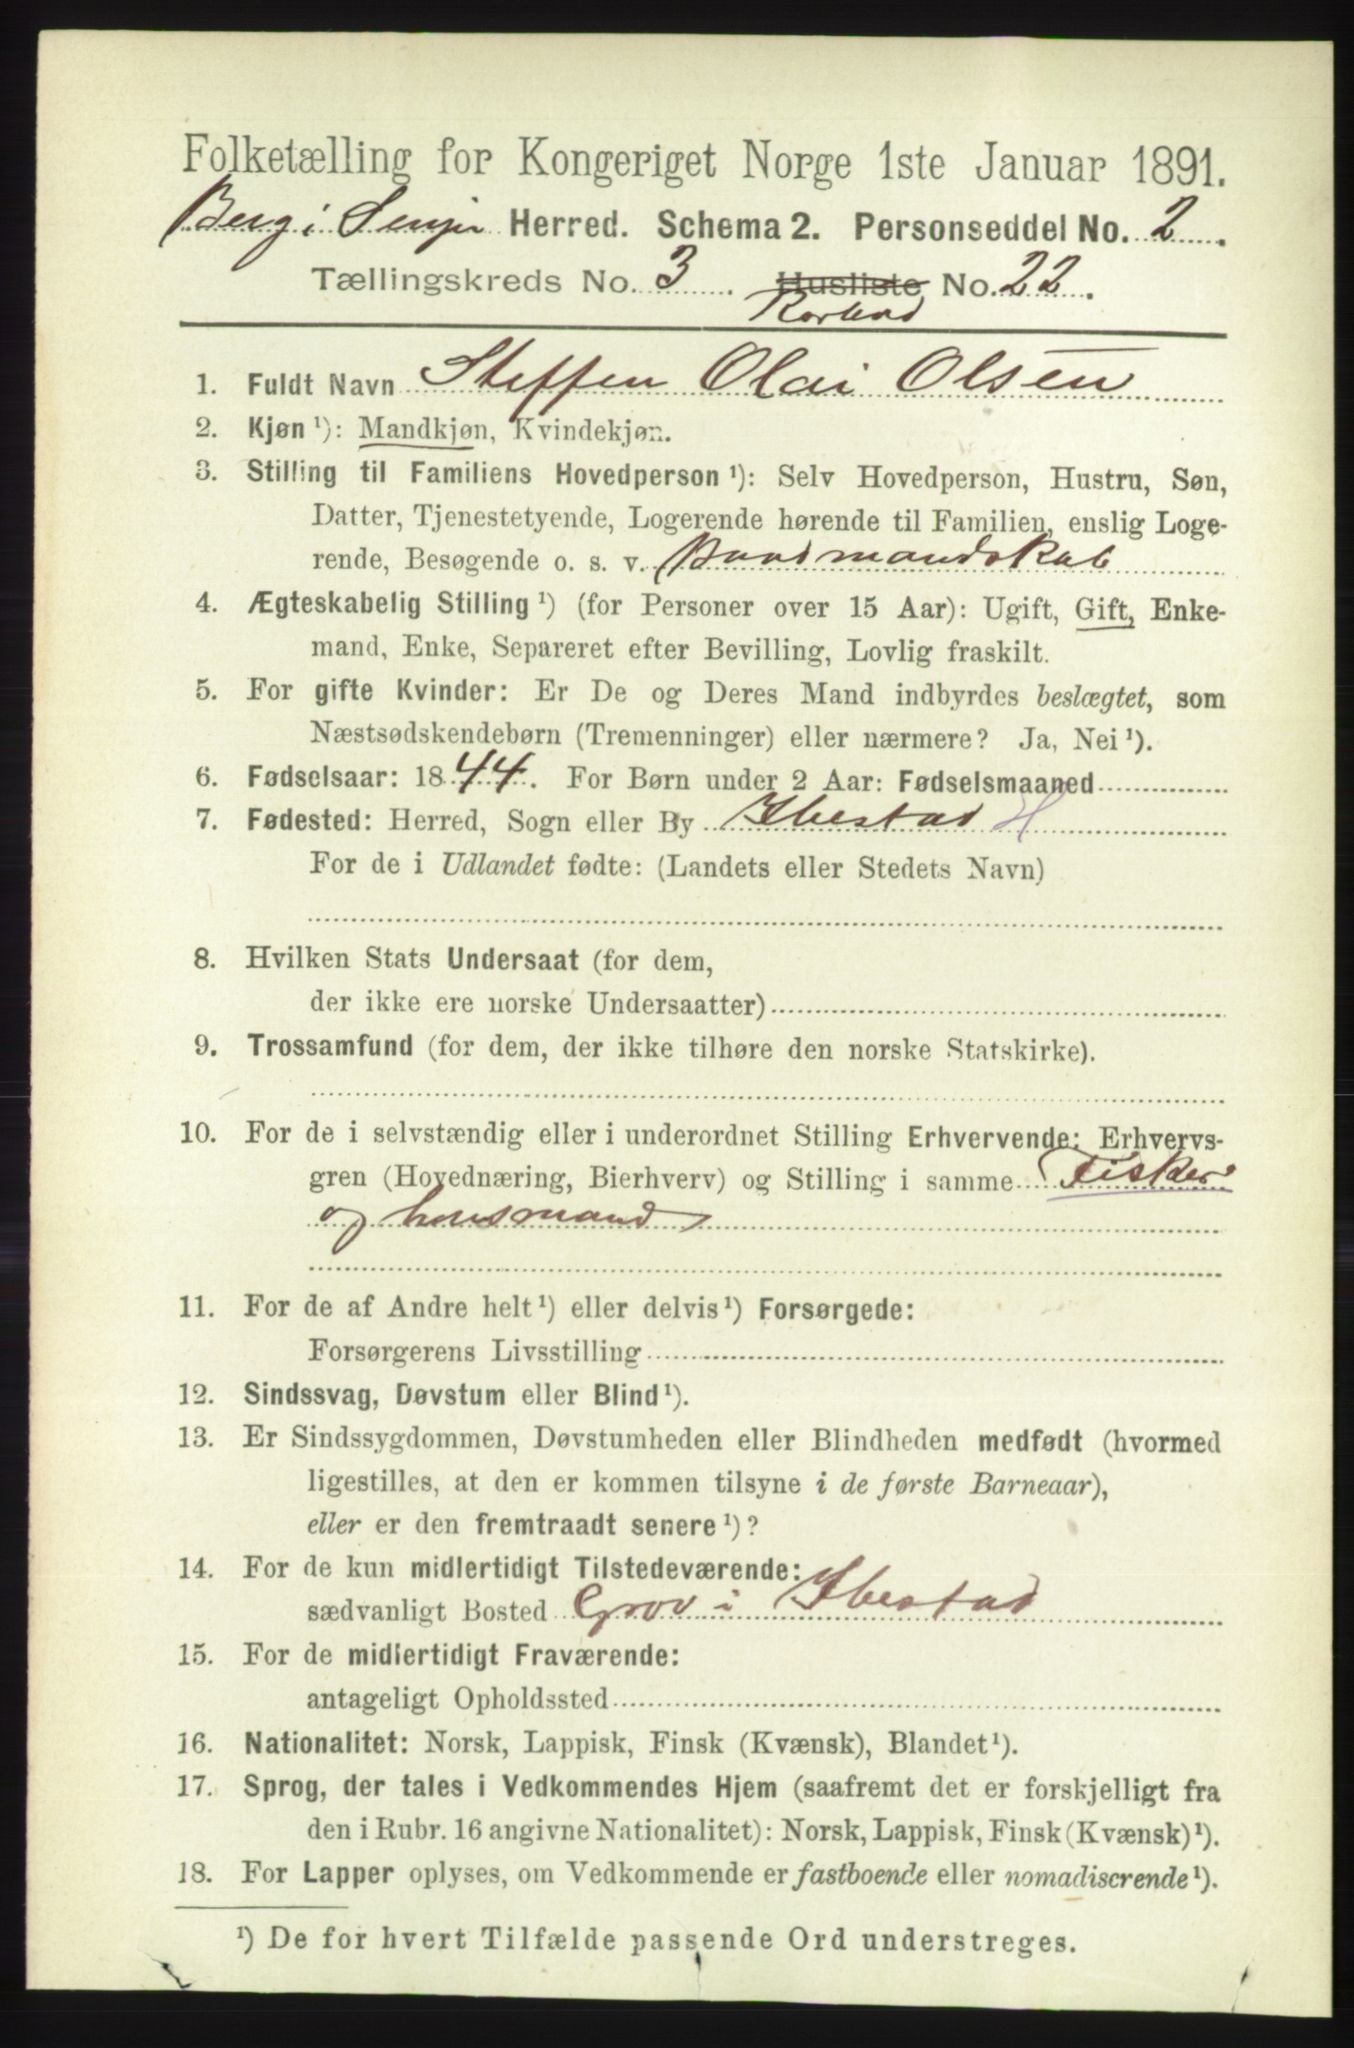 Folketælling for Kongeriget Norge 1ste Januar 1891.
Berg i Senjen Herred. Schema 2. Personseddel No. 2.
Tællingskreds No. 3. Husliste No. 22.
1. Fuldt Navn Steffen Olai Olsen
2. Kjøn ¹): Mandkjøn, Kvindekjøn.
3. Stilling til Familiens Hovedperson ¹): Selv Hovedperson, Hustru, Søn,
Datter, Tjenestetyende, Logerende hørende til Familien, enslig Loge-
rende, Besøgende o. s. v. Baadmandskab
4. Ægteskabelig Stilling ¹) (for Personer over 15 Aar): Ugift, Gift, Enke-
mand, Enke, Separeret efter Bevilling, Lovlig fraskilt.
5. For gifte Kvinder: Er De og Deres Mand indbyrdes beslægtet, som
Næstsødskendebørn (Tremenninger) eller nærmere? Ja, Nei ¹).
6. Fødselsaar: 1844. For Børn under 2 Aar: Fødselsmaaned
7. Fødested: Herred, Sogn eller By Ibestad H
For de i Udlandet fødte: (Landets eller Stedets Navn)
8. Hvilken Stats Undersaat (for dem,
der ikke ere norske Undersaatter)
9. Trossamfund (for dem, der ikke tilhøre den norske Statskirke).
10. For de i selvstændig eller i underordnet Stilling Erhvervende: Erhvervs-
gren (Hovednæring, Bierhverv) og Stilling i samme Fisker
og husmand
11. For de af Andre helt ¹) eller delvis ¹) Forsørgede:
Forsørgerens Livsstilling
12. Sindssvag, Døvstum eller Blind ¹).
13. Er Sindssygdommen, Døvstumheden eller Blindheden medfødt (hvormed
ligestilles, at den er kommen tilsyne i de første Barneaar),
eller er den fremtraadt senere ¹)?
14. For de kun midlertidigt Tilstedeværende:
sædvanligt Bosted Grov i Ibestad
15. For de midlertidigt Fraværende:
antageligt Opholdssted
16. Nationalitet: Norsk, Lappisk, Finsk (Kvænsk), Blandet ¹).
17. Sprog, der tales i Vedkommendes Hjem (saafremt det er forskjelligt fra
den i Rubr. 16 angivne Nationalitet): Norsk, Lappisk, Finsk (Kvænsk) ¹).
18. For Lapper oplyses, om Vedkommende er fastboende eller nomadiserende ¹).
¹) De for hvert Tilfælde passende Ord understreges.